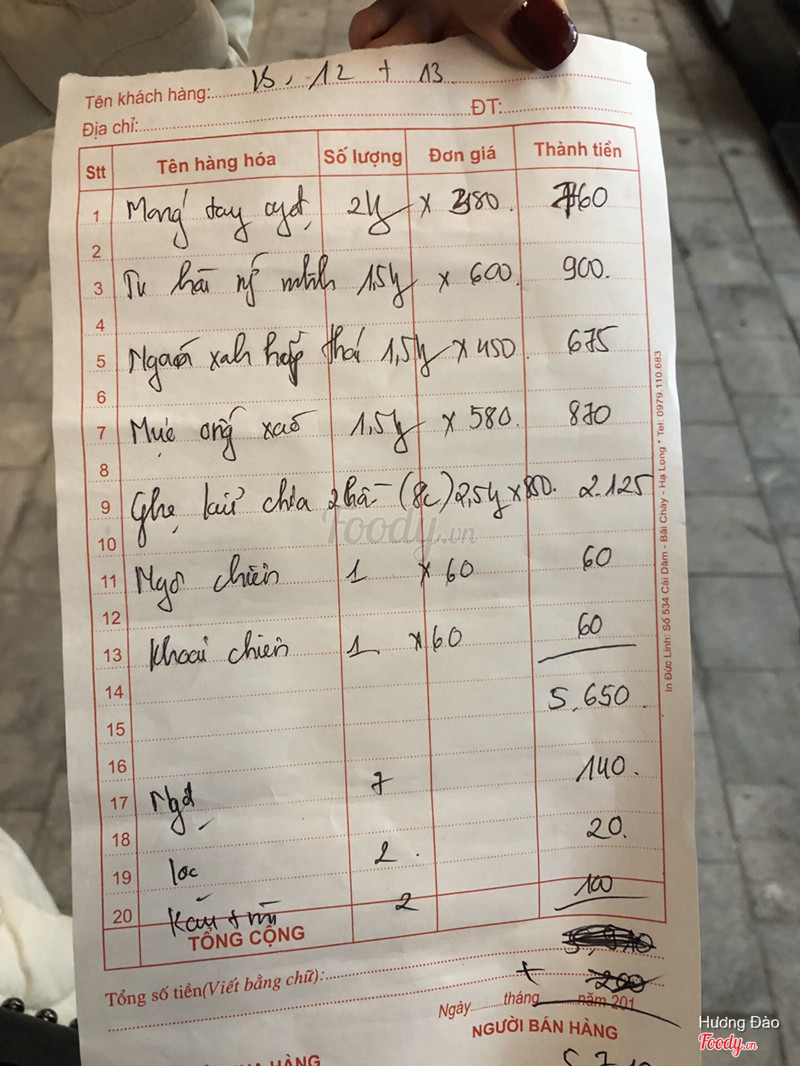 Tên khách hàng: B, 12 + 13
Địa chỉ: ĐT:
Stt Tên hàng hóa Số lượng Đơn giá Thành tiền
1 Móng tay 2 x 380. 760
2
3 Tu hài 1,5 x 600 900.
4
5 xanh hấp thái 1,5 x 450 675
6
7 Mực ống xào 1,5 x 580. 870
8
9 Ghẹ chia 2 (8c) 2,5 x 850. 2.125
10
11 Ngô chiên 1 x 60 60
12
13 Khoai chiên 1 x 60 60
14 5,650
15
16
17 Ngọt 7 140.
18
19 lạc 2. 20.
20 2 100
TỔNG CỘNG
Tổng số tiền (Viết bằng chữ):
+ 200
Ngày tháng năm 201
NGƯỜI BÁN HÀNG
In Đức Linh: Số 534 Cái Dăm - Bãi Cháy - Hạ Long * Tel: 0979.110.683
Foody.vn
Hương Đào
Foody.vn